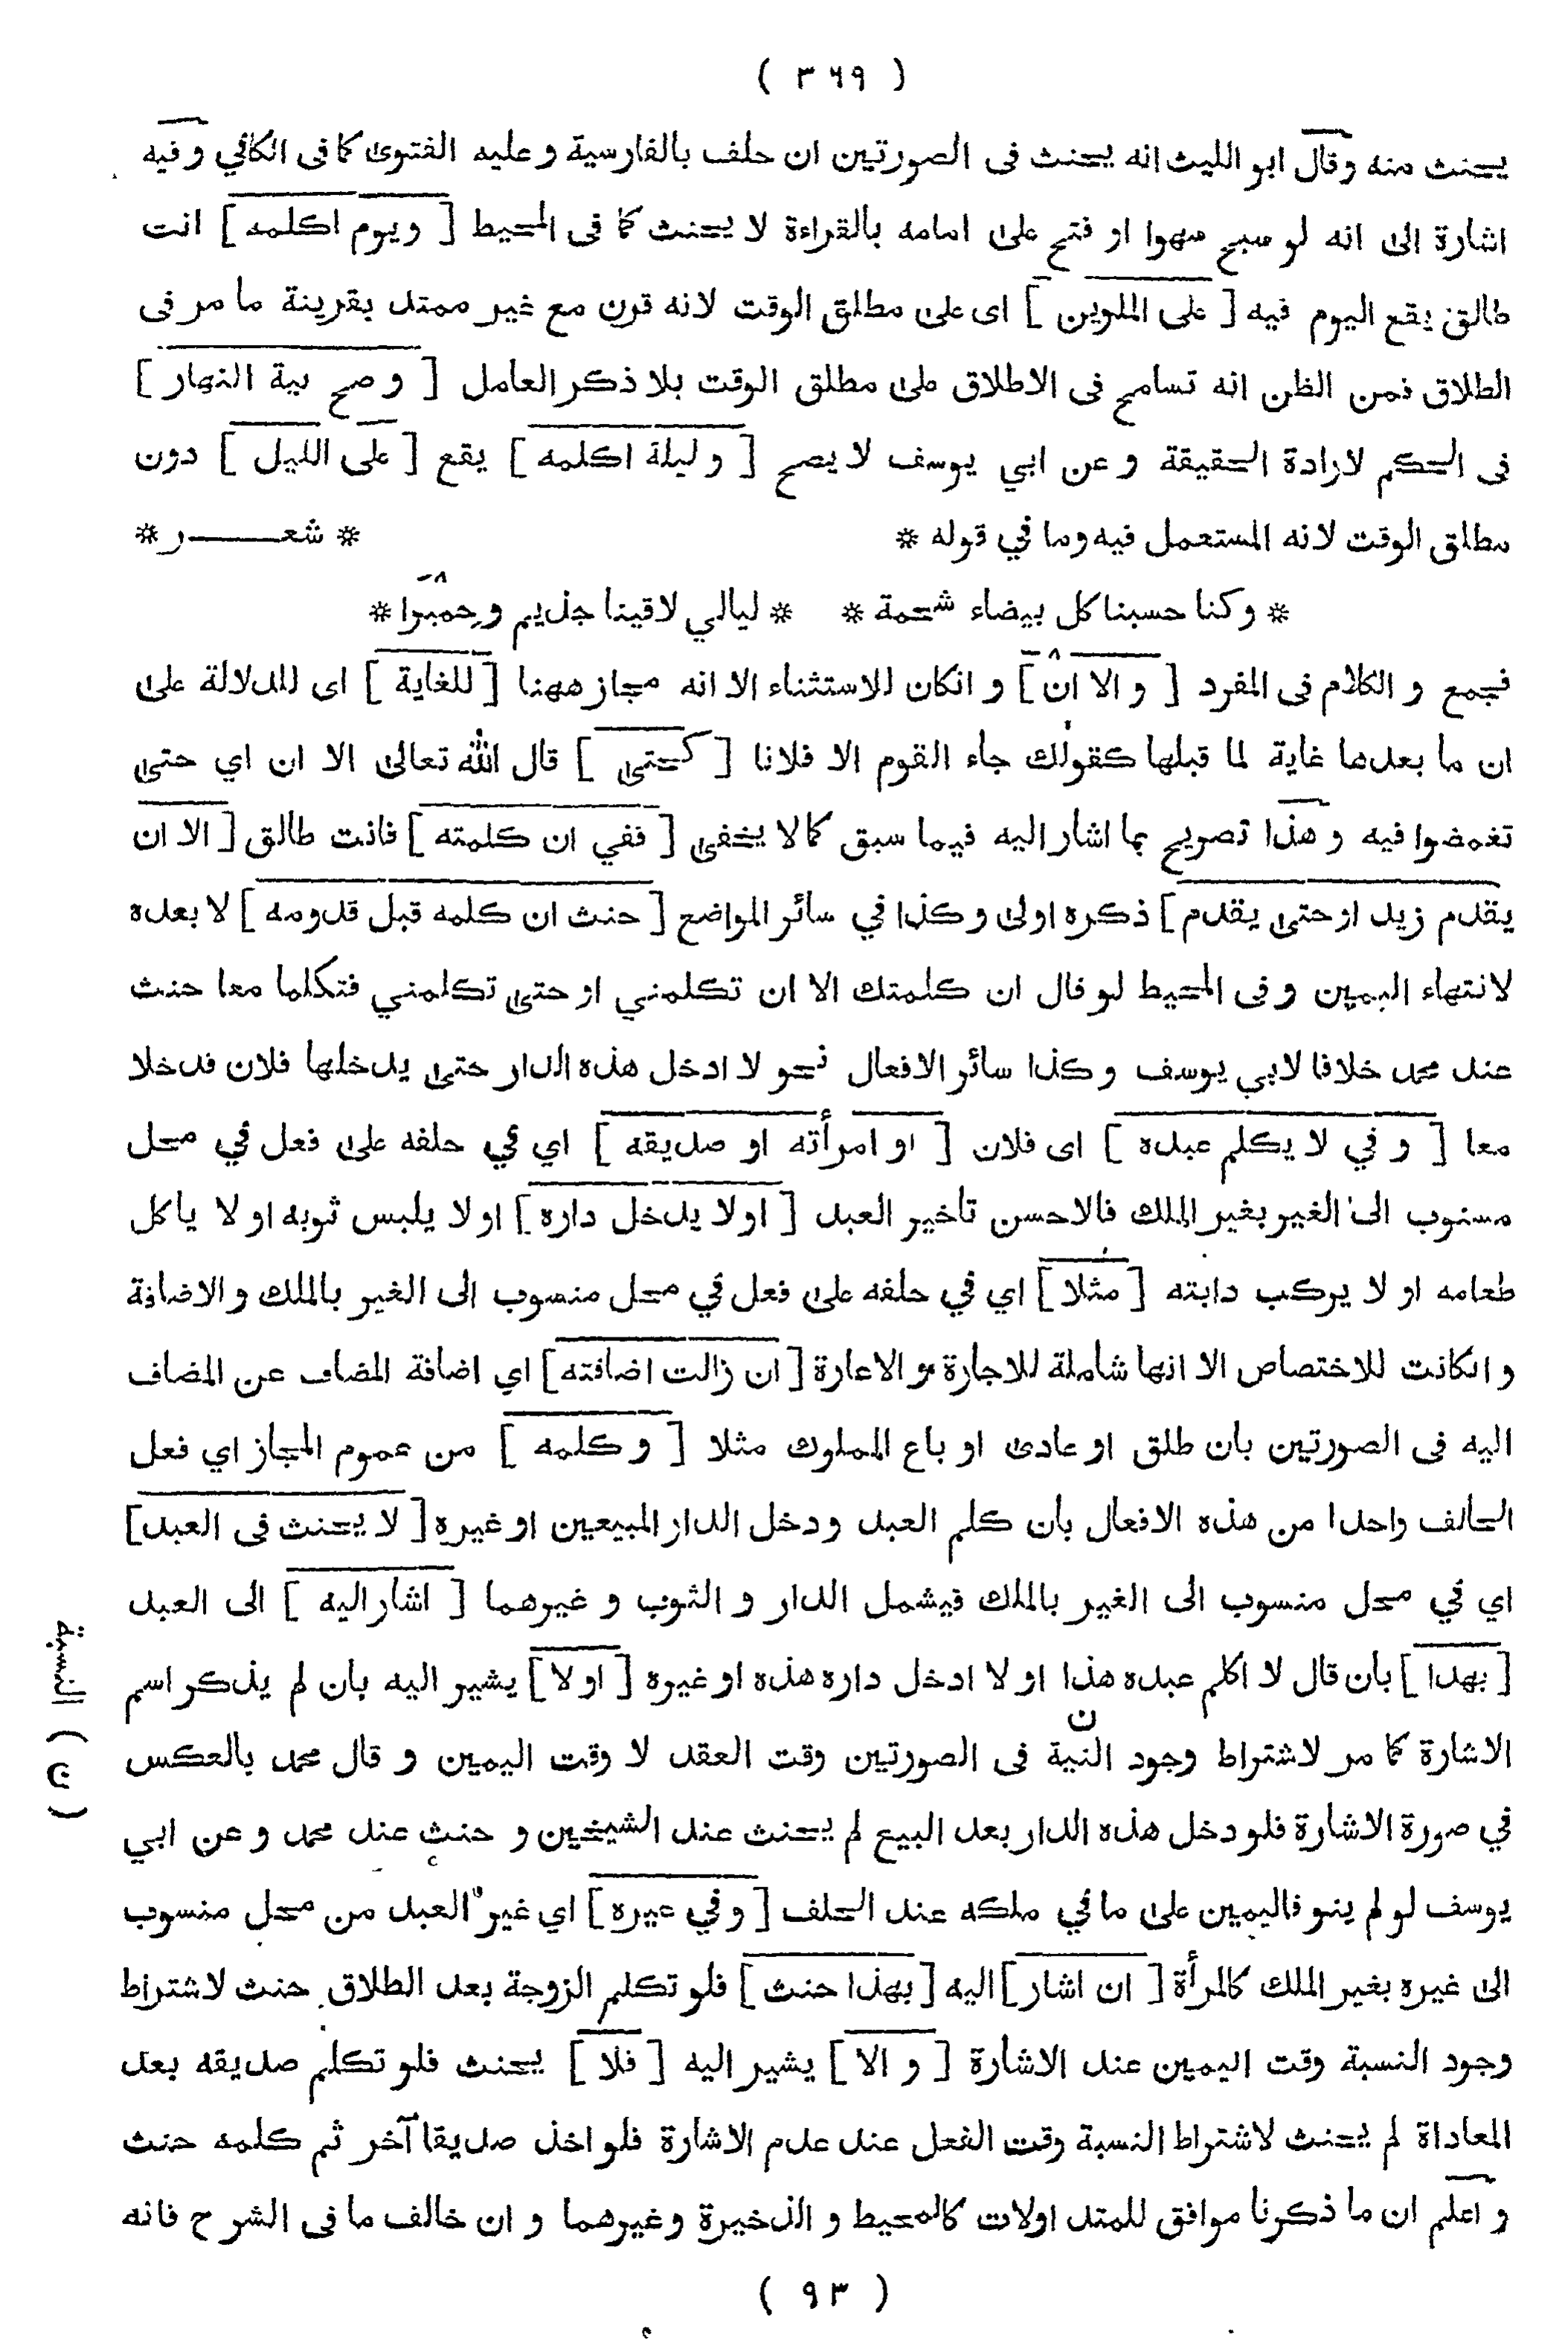 ( ٣٦٩ )
يحنث منه وقال ابو الليث انه يحنث فى الصورتين ان حلف بالفارسية و عليه الفتوى كما فى الكافي و فيه
اشارة الى انه لو سبح سهوا او فتح على امامه بالقراءة لا يحنث كما فى المحيط [ ويوم اكلمه ] انت
طالق يقع اليوم فيه [ على الملوين ] اى على مطلق الوقت لانه قرن مع غير ممتد بقرينة ما مر فى
الطلاق فمن الظن انه تسامح فى الاطلاق على مطلق الوقت بلا ذكر العامل [ و صح نية النهار ]
فى الحكم لارادة الحقيقة و عن ابي يوسف لا يصح [ و ليلة اكلمه ] يقع [ على الليل ] دون
مطلق الوقت لانه المستعمل فيه وما في قوله * * شعـــر *
* و كنا حسبنا كل بيضاء شحمة * * ليالي لاقينا جذيم و حميرا *
فجمع و الكلام فى المفرد [ و الا ان ] و انكان للاستثناء الا انه مجاز ههنا [ للغاية ] اى للدلالة على
ان ما بعدها غاية لما قبلها كقولك جاء القوم الا فلانا [ كحتى ] قال الله تعالى الا ان اي حتى
تغمضوا فيه و هذا تصريح بما اشار اليه فيما سبق كما لا يخفى [ ففي ان كلمته ] فانت طالق [ الا ان
يقدم زيد او حتى يقدم ] ذكره اولى و كذا في سائر المواضع [ حنث ان كلمه قبل قدومه ] لا بعده
لانتهاء اليمين و فى المحيط لو قال ان كلمتك الا ان تكلمني او حتى تكلمني فتكلما معا حنث
عند محمد خلافا لابي يوسف و كذا سائر الافعال نحو لا ادخل هذه الدار حتى يدخلها فلان فدخلا
معا [ و في لا يكلم عبده ] اى فلان [ او امرأته او صديقه ] اي في حلفه على فعل في محل
مسنوب الى الغير بغير الملك فالاحسن تأخير العبد [ او لا يدخل داره ] او لا يلبس ثوبه او لا ياكل
طعامه او لا يركب دابته [ مثلا ] اي في حلفه على فعل في محل منسوب الى الغير بالملك و الاضافة
و انكانت للاختصاص الا انها شاملة للاجارة و الاعارة [ ان زالت اضافته ] اي اضافة المضاف عن المضاف
اليه فى الصورتين بان طلق او عادى او باع المملوك مثلا [ و كلمه ] من عموم المجاز اي فعل
الحالف واحدا من هذه الافعال بأن كلم العبد و دخل الدار المبيعين او غيره [ لا يحنث فى العبد ]
اي في محل منسوب الى الغير بالملك فيشمل الدار و الثوب و غيرهما [ اشار اليه ] الى العبد
[ بهذا ] بأن قال لا اكلم عبده هذا او لا ادخل داره هذه او غيره [ او لا ] يشير اليه بان لم يذكر اسم
الاشارة كما مر لاشتراط وجود النية فى الصورتين وقت العقد لا وقت اليمين و قال محمد بالعكس
ن
( ن ) النسبة
في صورة الاشارة فلو دخل هذه الدار بعد البيع لم يحنث عند الشيخين و حنث عند محمد و عن ابي
يوسف لو لم ينو فاليمين على ما في ملكه عند الحلف [ و في غيره ] اي غير العبد من محل منسوب
الى غيره بغير الملك كالمرأة [ ان اشار ] اليه [ بهذا حنث ] فلو تكلم الزوجة بعد الطلاق حنث لاشتراط
وجود النسبة وقت اليمين عند الاشارة [ و الا ] يشير اليه [ فلا ] يحنث فلو تكلم صديقه بعد
المعاداة لم يحنث لاشتراط النسبة وقت الفعل عند عدم الاشارة فلو اخذ صديقا آخر ثم كلمه حنث
و اعلم ان ما ذكرنا موافق للمتداولات كالمحيط و الذخيرة و غيرهما و ان خالف ما فى الشرح فانه
( ٩٣ )